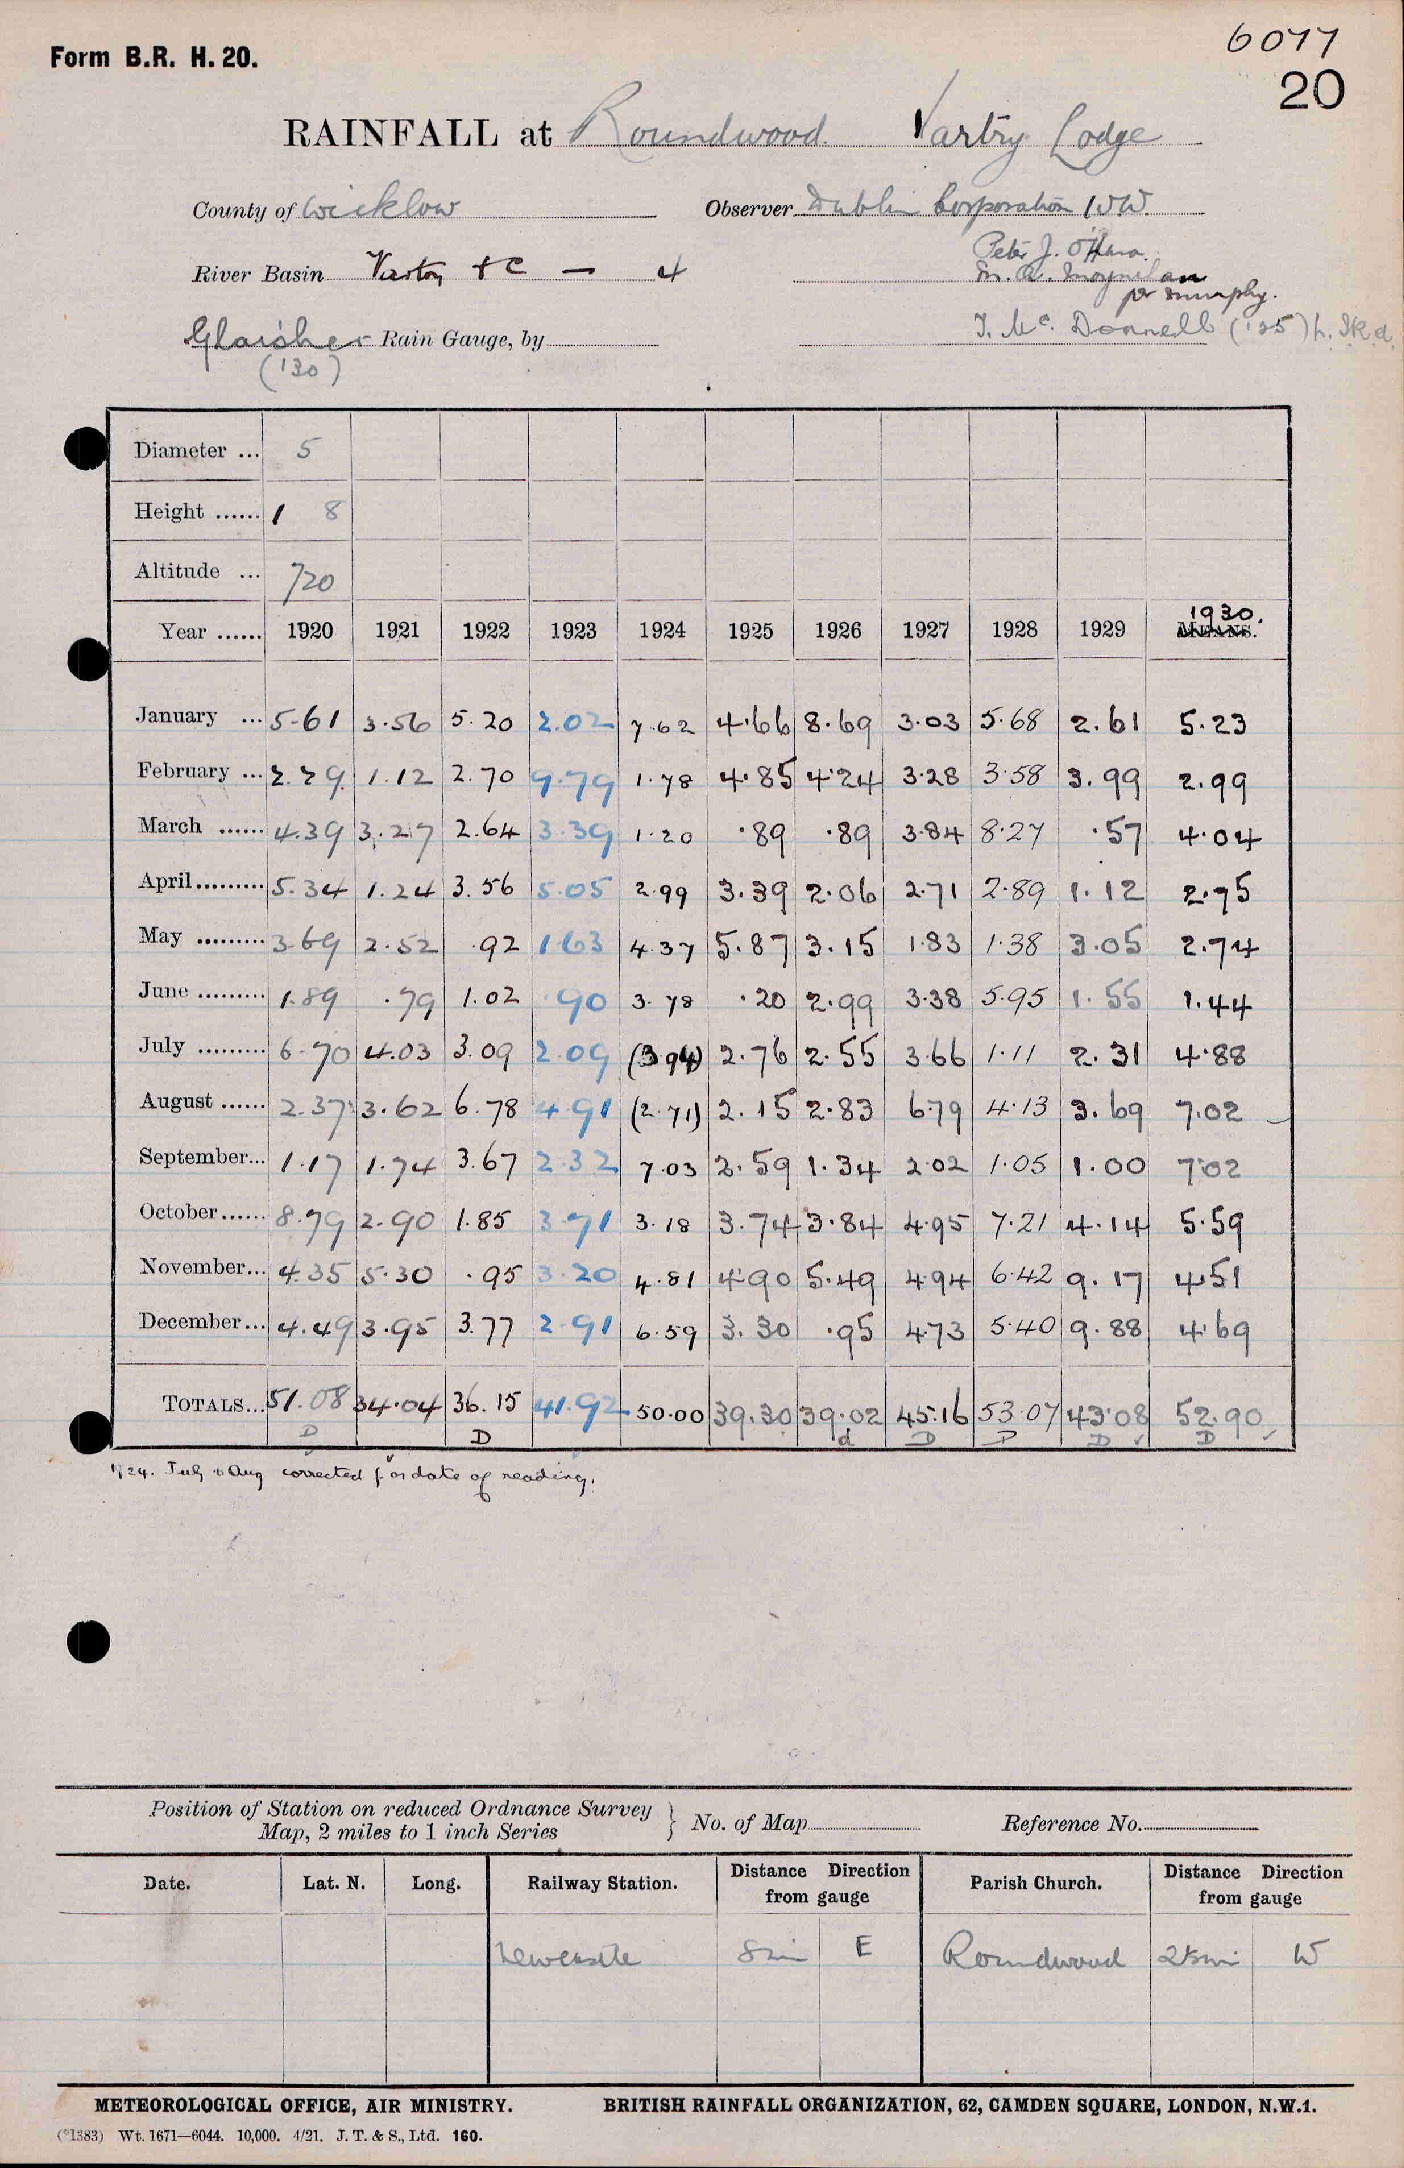 6077
Form B.R. H. 20.
20
RAINFALL at Roundwood Vartry Lodge
County of Wicklow Observer Dublin Corporation WW.
Peter J. O'Hara.
River Basin Vartry + C — 4
per Murphy.
Glaisher Rain Gauge, by
T. Mc. Donnell ('25)
('30)
Diameter ... 5
Height ...... 1 8
Altitude ... 720
1930.
Year ...... 1920 1921 1922 1923 1924 1925 1926 1927 1928 1929 MEANS.
January ... 5.61 3.56 5.20 2.02 7.62 4.66 8.69 3.03 5.68 2.61 5.23
February ... 2.29 1.12 2.70 9.79 1.78 4.85 4.24 3.28 3.58 3.99 2.99
March ...... 4.39 3.27 2.64 3.39 1.20 .89 .89 3.84 8.27 .57 4.04
April ......... 5.34 1.24 3.56 5.05 2.99 3.39 2.06 2.71 2.89 1.12 2.75
May ......... 3.69 2.52 .92 1.63 4.37 5.87 3.15 1.83 1.38 3.05 2.74
June ......... 1.89 .79 1.02 .90 3.78 .20 2.99 3.38 5.95 1.55 1.44
July ......... 6.70 4.03 3.09 2.09 (3.94) 2.76 2.55 3.66 1.11 2.31 4.88
August ...... 2.37 3.62 6.78 4.91 (2.71) 2.15 2.83 6.79 4.13 3.69 7.02
September... 1.17 1.74 3.67 2.32 7.03 2.59 1.34 2.02 1.05 1.00 7.02
October ...... 8.79 2.90 1.85 3.71 3.18 3.74 3.84 4.95 7.21 4.14 5.59
November... 4.35 5.30 .95 3.20 4.81 4.90 5.49 4.94 6.42 9.17 4.51
December... 4.49 3.95 3.77 2.91 6.59 3.30 .95 4.73 5.40 9.88 4.69
TOTALS... 51.08 34.04 36.15 41.92 50.00 39.30 39.02 45.16 53.07 43.08 52.90
D D d D D D ✓ D ✓
1924. July & Aug corrected for date of reading.
Position of Station on reduced Ordnance Survey
Map, 2 miles to 1 inch Series } No. of Map Reference No.
Date. Lat. N. Long. Railway Station. Distance Direction from gauge Parish Church. Distance Direction from gauge
Newcastle 8 mi E Roundwood W
METEOROLOGICAL OFFICE, AIR MINISTRY. BRITISH RAINFALL ORGANIZATION, 62, CAMDEN SQUARE, LONDON, N.W.1.
(*1383) Wt. 1671—6044. 10,000. 4/21. J. T. & S., Ltd. 160.